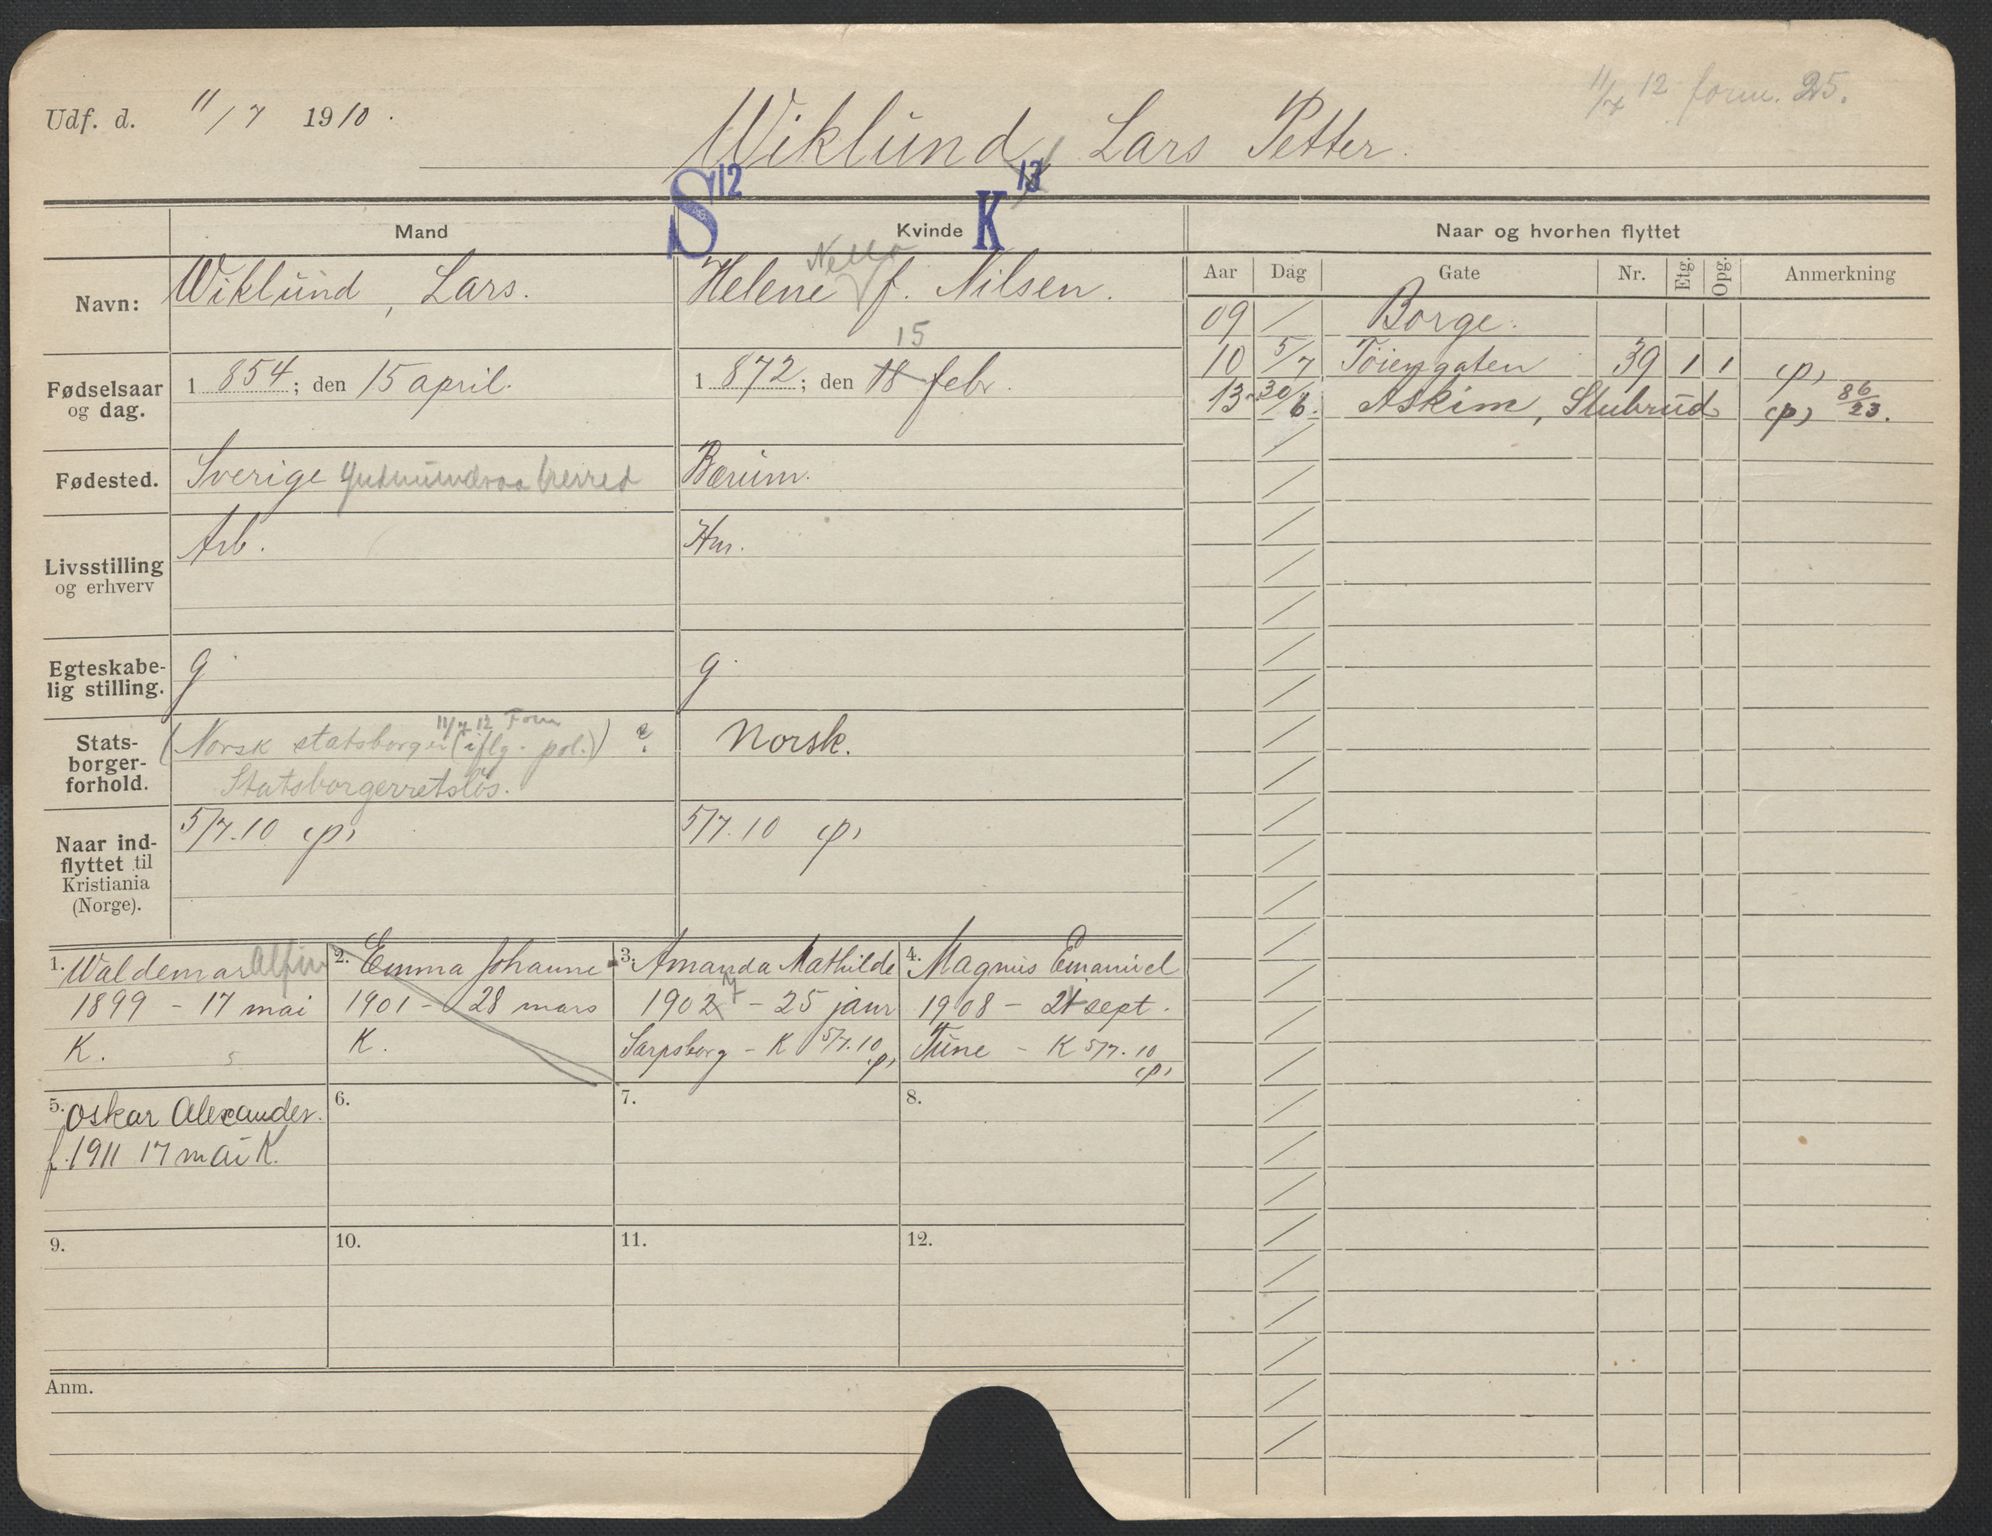 Udf. d. 11/7 1910.
11/7 12 form. 25.
Wiklund, Lars Petter.
S 12
K 13
Mand
Kvinde
Naar og hvorhen flyttet
Navn:
Wiklund, Lars.
Helene f. Nilsen.
Aar Dag Gate Nr. Etg. Opg. Anmerkning
09 / Borge.
10 5/7 Töiengaten 39 1 1 (p)
13 30/6. Askim, Slubrud (p) 86/23.
Fødselsaar og dag.
1 854; den 15 april.
15
1 872; den 18 febr.
Fødested.
Sverige Gudmundraa herred
Bærum.
Livsstilling og erhverv
Arb.
Hm.
Egteskabe-
lig stilling.
g.
g.
Stats-
borger-
forhold.
11/7 12 Form
(Norsk statsborger (iflg. pol.)) ?
Statsborgerretslös.
Norsk.
Naar ind-
flyttet til
Kristiania
(Norge).
5/7.10 (p)
5/7.10 (p)
1. Waldemar Alfin
1899 - 17 mai
K.
5
2. Emma Johanne
1901 - 28 mars
K.
3. Amanda Mathilde
1902 - 25 janr
Sarpsborg - K 5/7.10 (p)
4. Magnus Emanuel
1908 - 21 sept.
Tune - K 5/7.10 (p)
5. Oskar Alexander.
f. 1911 17 mai K.
6.
7.
8.
9.
10.
11.
12.
Anm.